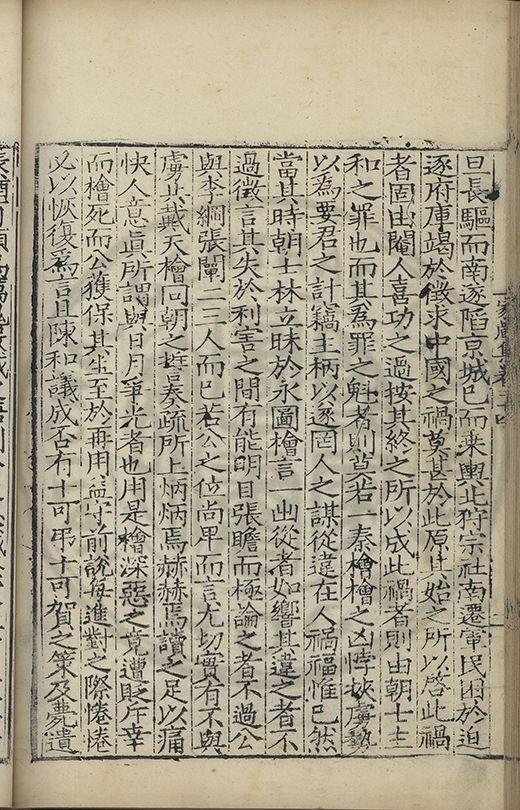 旦長驅而南遂陷京城巳而乘輿北狩宗社南遷軍民困於迫
逐府庫竭於徵求中國之禍莫甚於此原其始之所以啓此禍
者固由閹人喜功之過按其終之所以成此禍者則由朝士主
和之罪也而其為罪之魁者則若一秦檜檜之凶悖挾虜勢
以為要君之計竊主柄以逐罔人之謀從違在人禍福惟巳然
當其時朝士林立昧於永圖檜言一出從者如響其違之者不
過徵言其失於利害之間有能明目張膽而極論之者不過公
與李綱張闡二三人而巳若公之位尚卑而言尤切實有不與
虜共戴天檜同朝之誓奏疏所上炳炳焉赫赫焉讀之足以痛
快人意眞所謂與日月爭光者也用是檜深惡之竟遭貶斥幸
而檜死而公獲保其生至於再用益守前說每進對之際惓惓
必以恢復爲言且陳和議成否有十可弔十可賀之策及薨遺